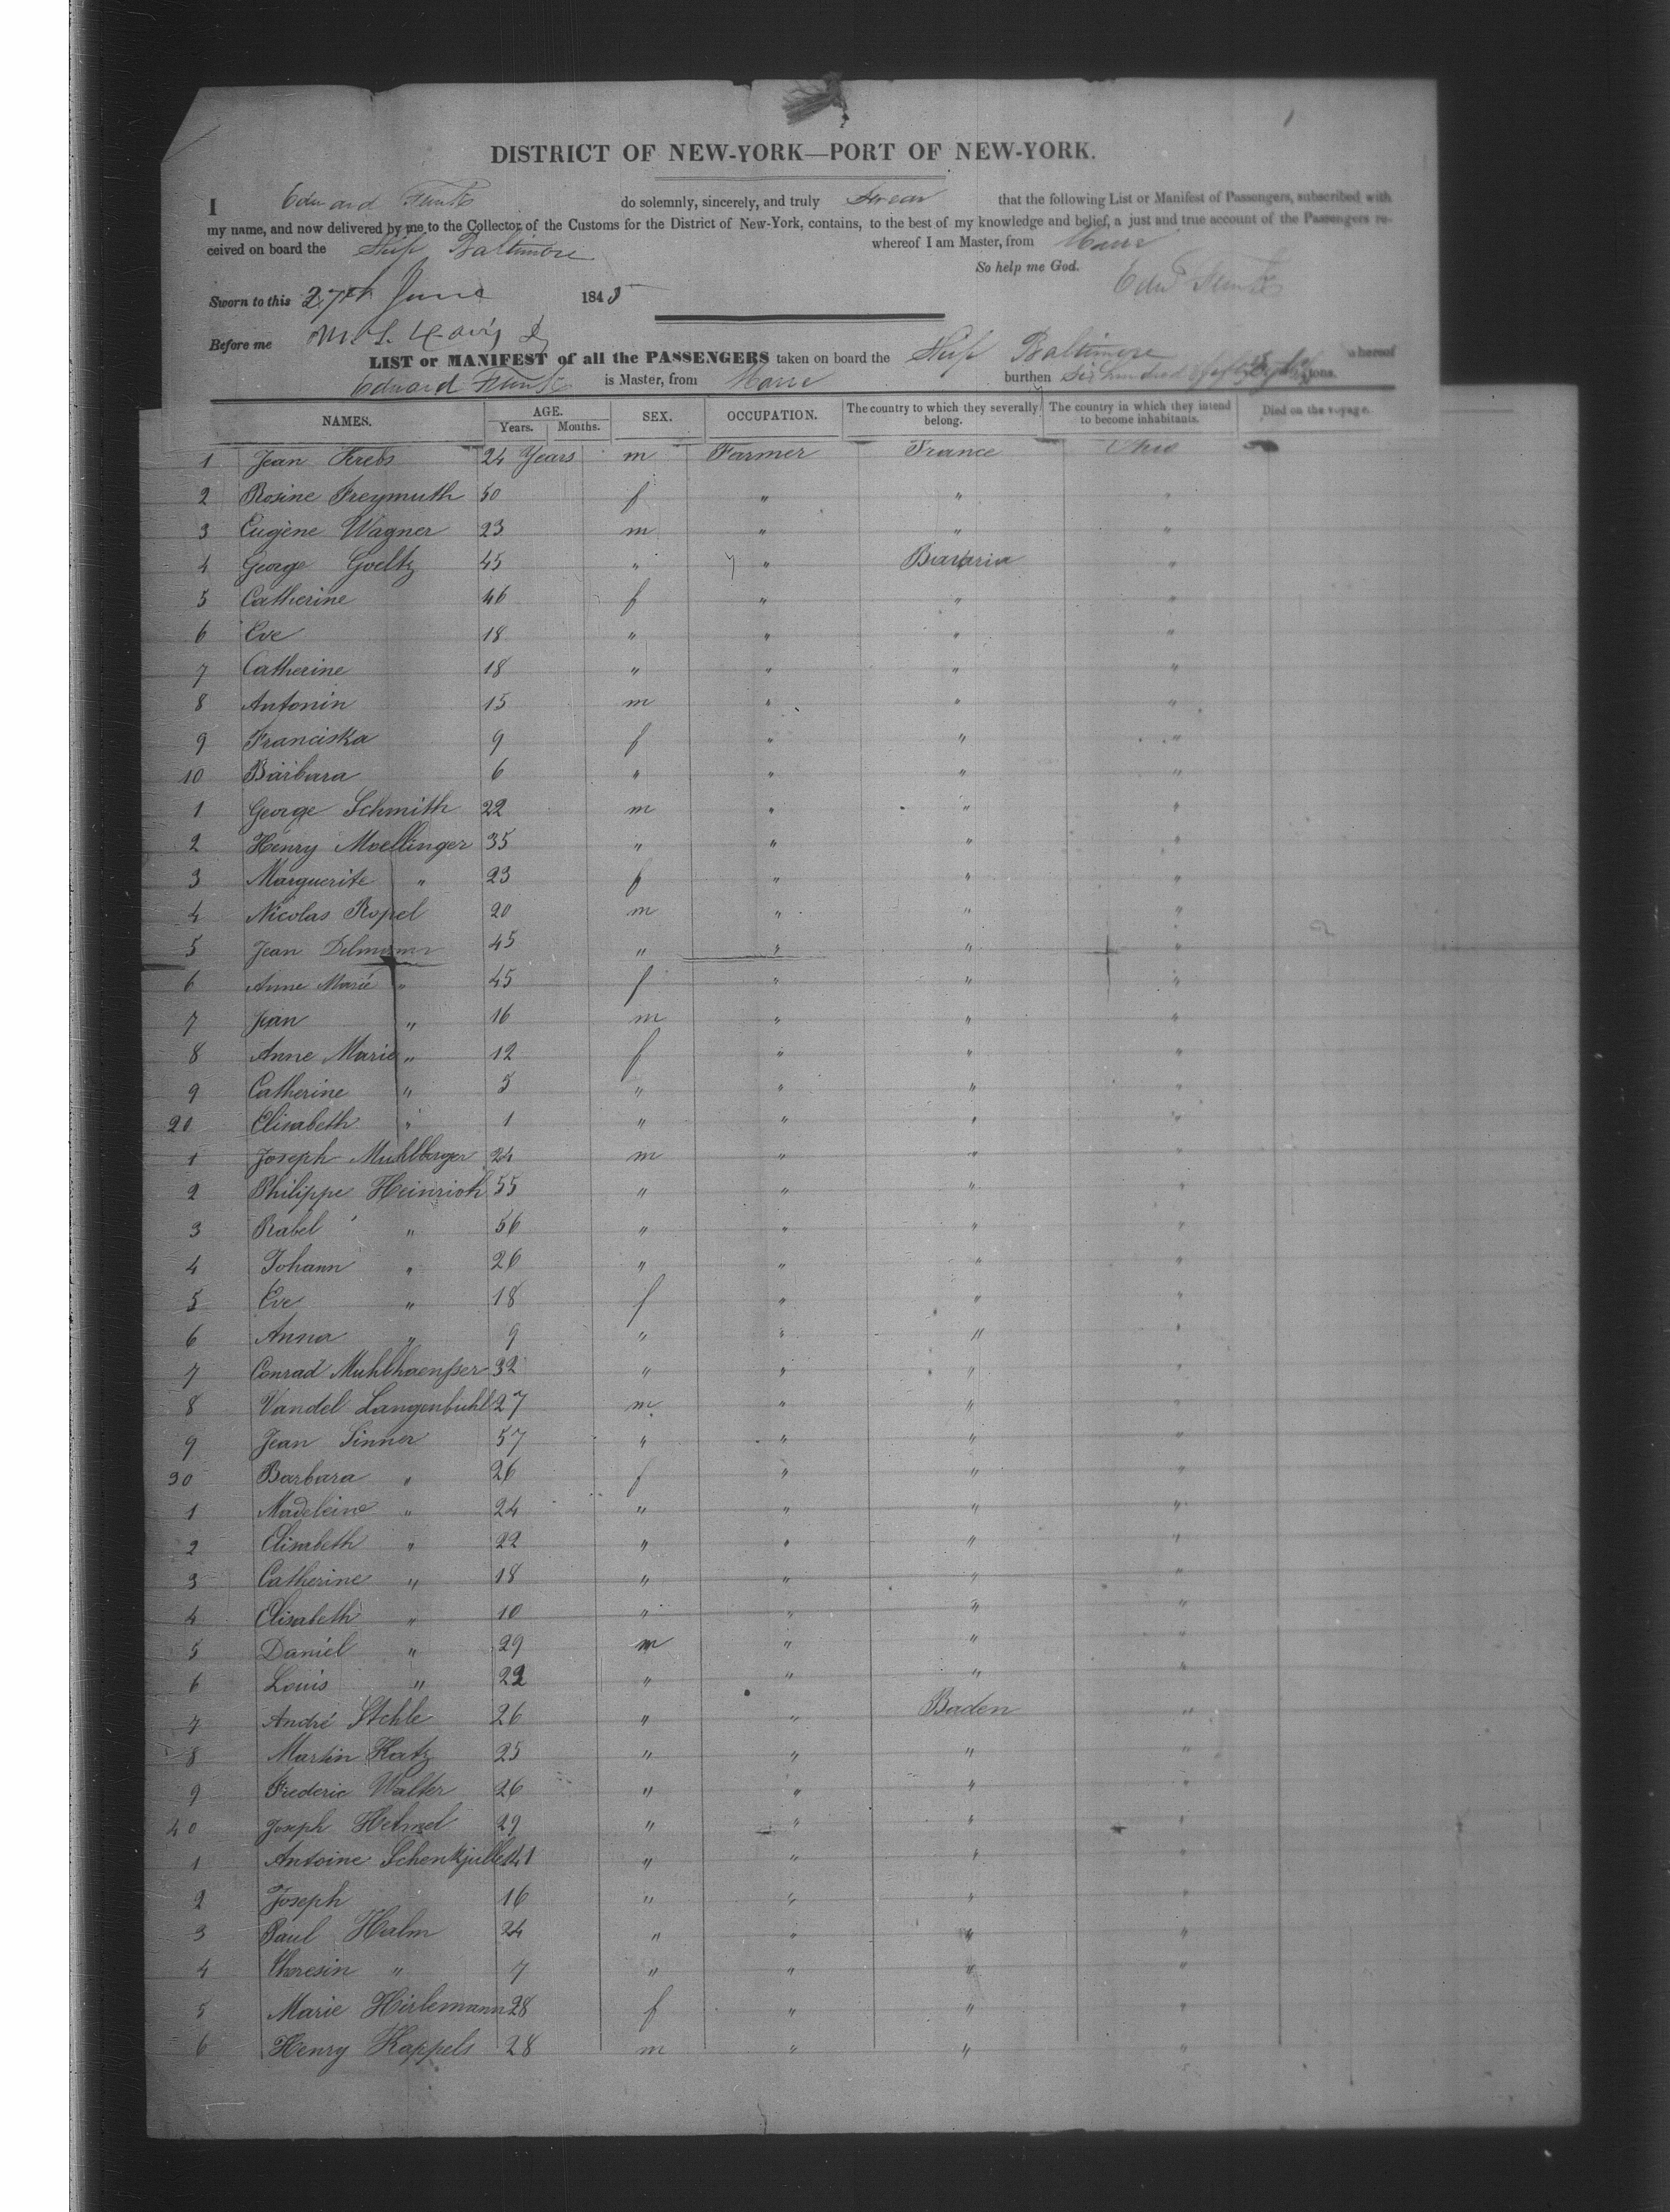 DISTRICT OF NEW-YORK—PORT OF NEW-YORK.
I Edward Funk do solemnly, sincerely, and truly Swear that the following List or Manifest of Passengers, subscribed with
my name, and now delivered by me to the Collector of the Customs for the District of New-York, contains, to the best of my knowledge and belief, a just and true account of the Passengers re-
ceived on board the Ship Baltimore whereof I am Master, from Havre
So help me God.
Edw Funk
Sworn to this 27th June 1845
Before me
LIST or MANIFEST of all the PASSENGERS taken on board the Ship Baltimore whereof
Edward Funk is Master, from Havre burthen Six hundred & fifty eight tons.
NAMES. AGE. Years. Months. SEX. OCCUPATION. The country to which they severally belong. The country in which they intend to become inhabitants. Died on the voyage.
1 Jean Krebs 24 Years m Farmer France Ohio
2 Rosine Freymuth 50 f " " "
3 Eugène Wagner 23 m " " "
4 George Goeltz 45 " " Bavaria "
5 Catherine 46 f " " "
6 Eve 18 " " " "
7 Catherine 18 " " " "
8 Antonin 15 m " " "
9 Franciska 9 f " " "
10 Barbara 6 " " " "
1 George Schmith 22 m " " "
2 Henry Moellinger 35 " " " "
3 Marguerite " 23 f " " "
4 Nicolas Ropel 20 m " " "
5 Jean 45 " " " "
6 Anne Marie " 45 f " " "
7 Jean " 16 m " " "
8 Anne Marie " 12 f " " "
9 Catherine " 5 " " " "
20 Elisabeth " 1 " " " "
1 Joseph Muhlberger 24 m " " "
2 Philippe Heinrich 55 " " " "
3 Rabel " 56 " " " "
4 Johann " 26 " " " "
5 Eve " 18 f " " "
6 Anna " 9 " " " "
7 Conrad Muhlhaenser 32 " " " "
8 Vandel Langenbuhl 27 m " " "
9 Jean Sinner 57 " " " "
30 Barbara " 26 f " " "
1 Madeleine " 24 " " " "
2 Elisabeth " 22 " " " "
3 Catherine " 18 " " " "
4 Elisabeth " 10 " " " "
5 Daniel " 29 m " " "
6 Louis " 22 " " " "
7 André Stehle 26 " " Baden "
8 Martin Katz 25 " " " "
9 Frederic Walter 26 " " " "
40 Joseph Helmel 29 " " " "
1 Antoine 41 " " " "
2 Joseph 16 " " " "
3 Paul Halm 24 " " " "
4 Theresin " 7 " " " "
5 Marie Hirlemann 28 f " " "
6 Henry Kappels 28 m " " "